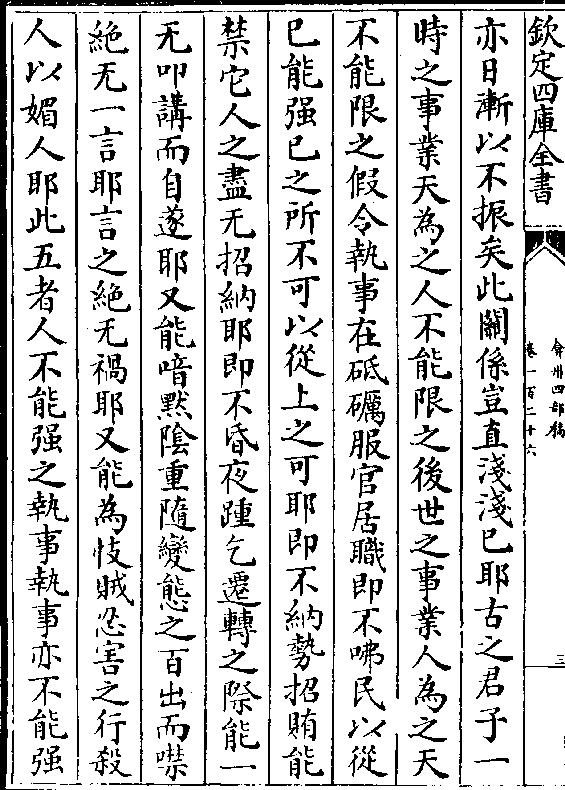 欽定四庫全書
弇州四部稿
卷一百二十六
三
亦日漸以不振矣此關係豈直淺淺已耶古之君子一
時之事業天為之人不能限之後世之事業人為之天
不能限之假令執事在砥礪服官居職即不咈民以從
已能强已之所不可以從上之可耶即不納勢招賄能
禁它人之盡无招納耶即不昏夜踵乞遷轉之際能一
无叩講而自遂耶又能喑默陰重隨變態之百出而噤
絶无一言耶言之絶无禍耶又能為忮賊忍害之行殺
人以媚人耶此五者人不能强之執事執事亦不能强